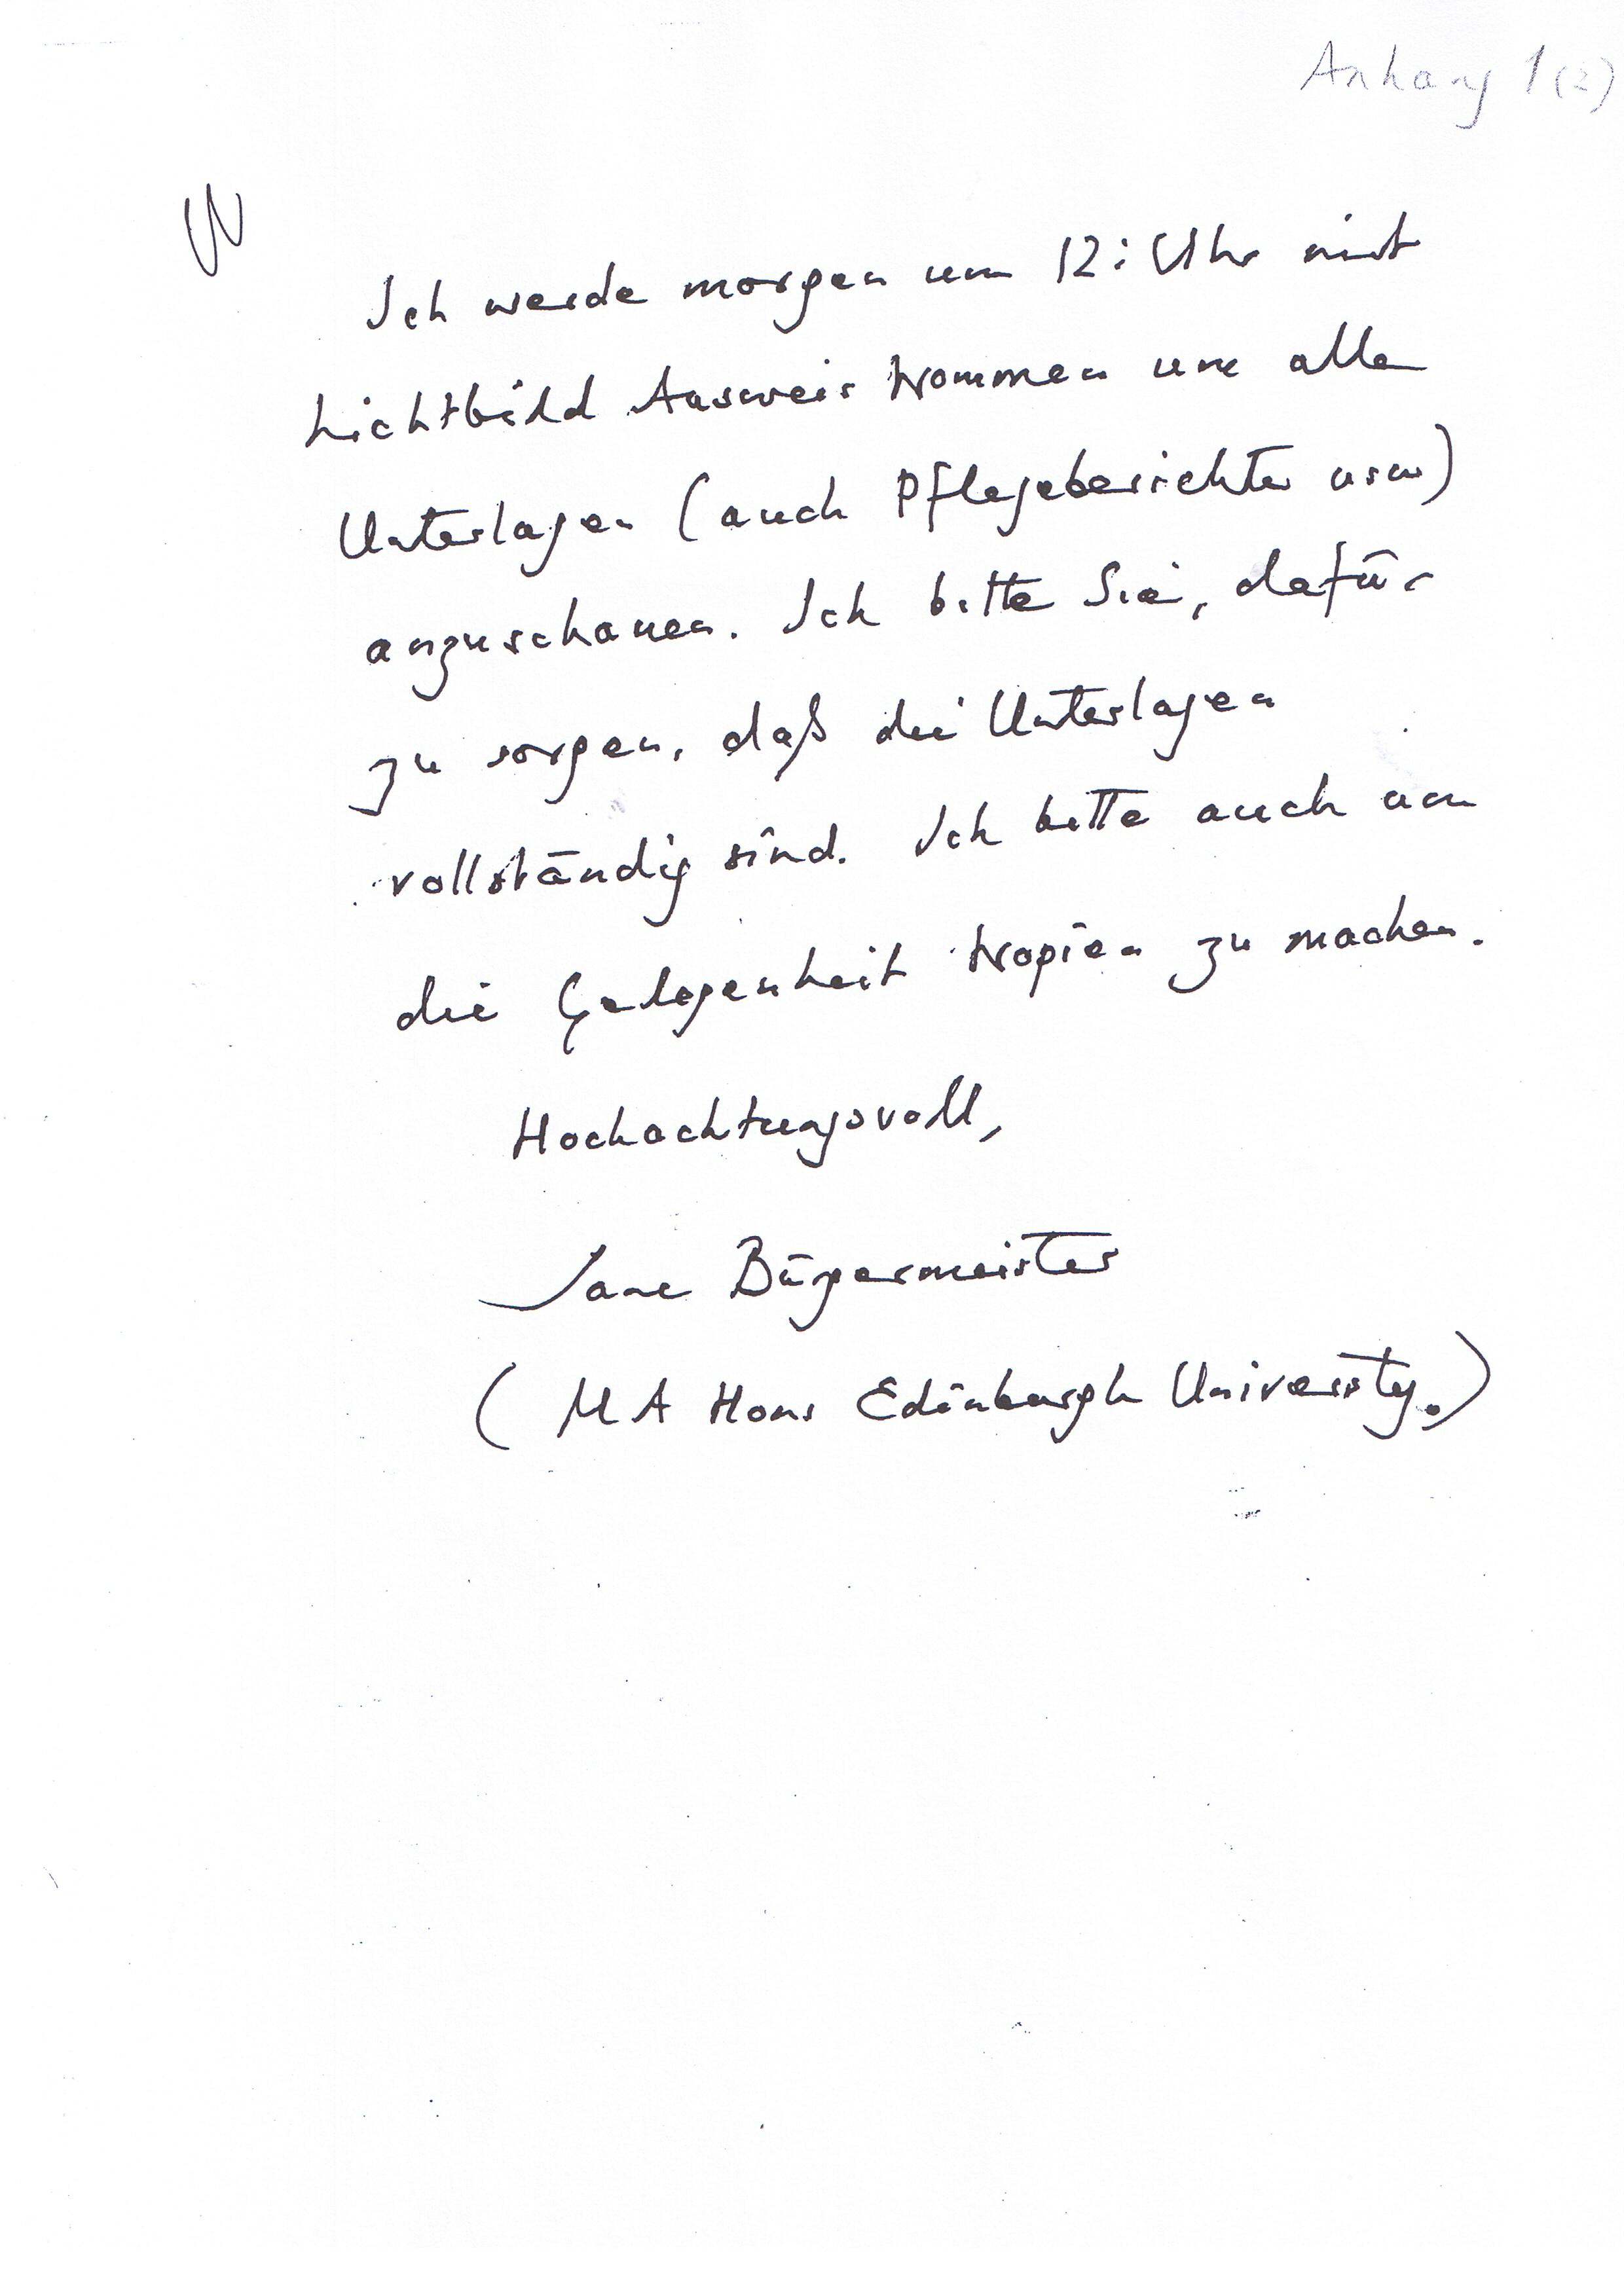 Anhang 1 (2)
Ich werde morgen um 12: Uhr mit
Lichtbild Ausweis kommen um alle
Unterlagen (auch Pflegeberichte usw)
anzuschauen. Ich bitte Sie, dafür
zu sorgen, daß die Unterlagen
vollständig sind. Ich bitte auch um
die Gelegenheit Kopien zu machen.
Hochachtungsvoll,
Jane Bürgermeister
(MA Hons Edinburgh University.)